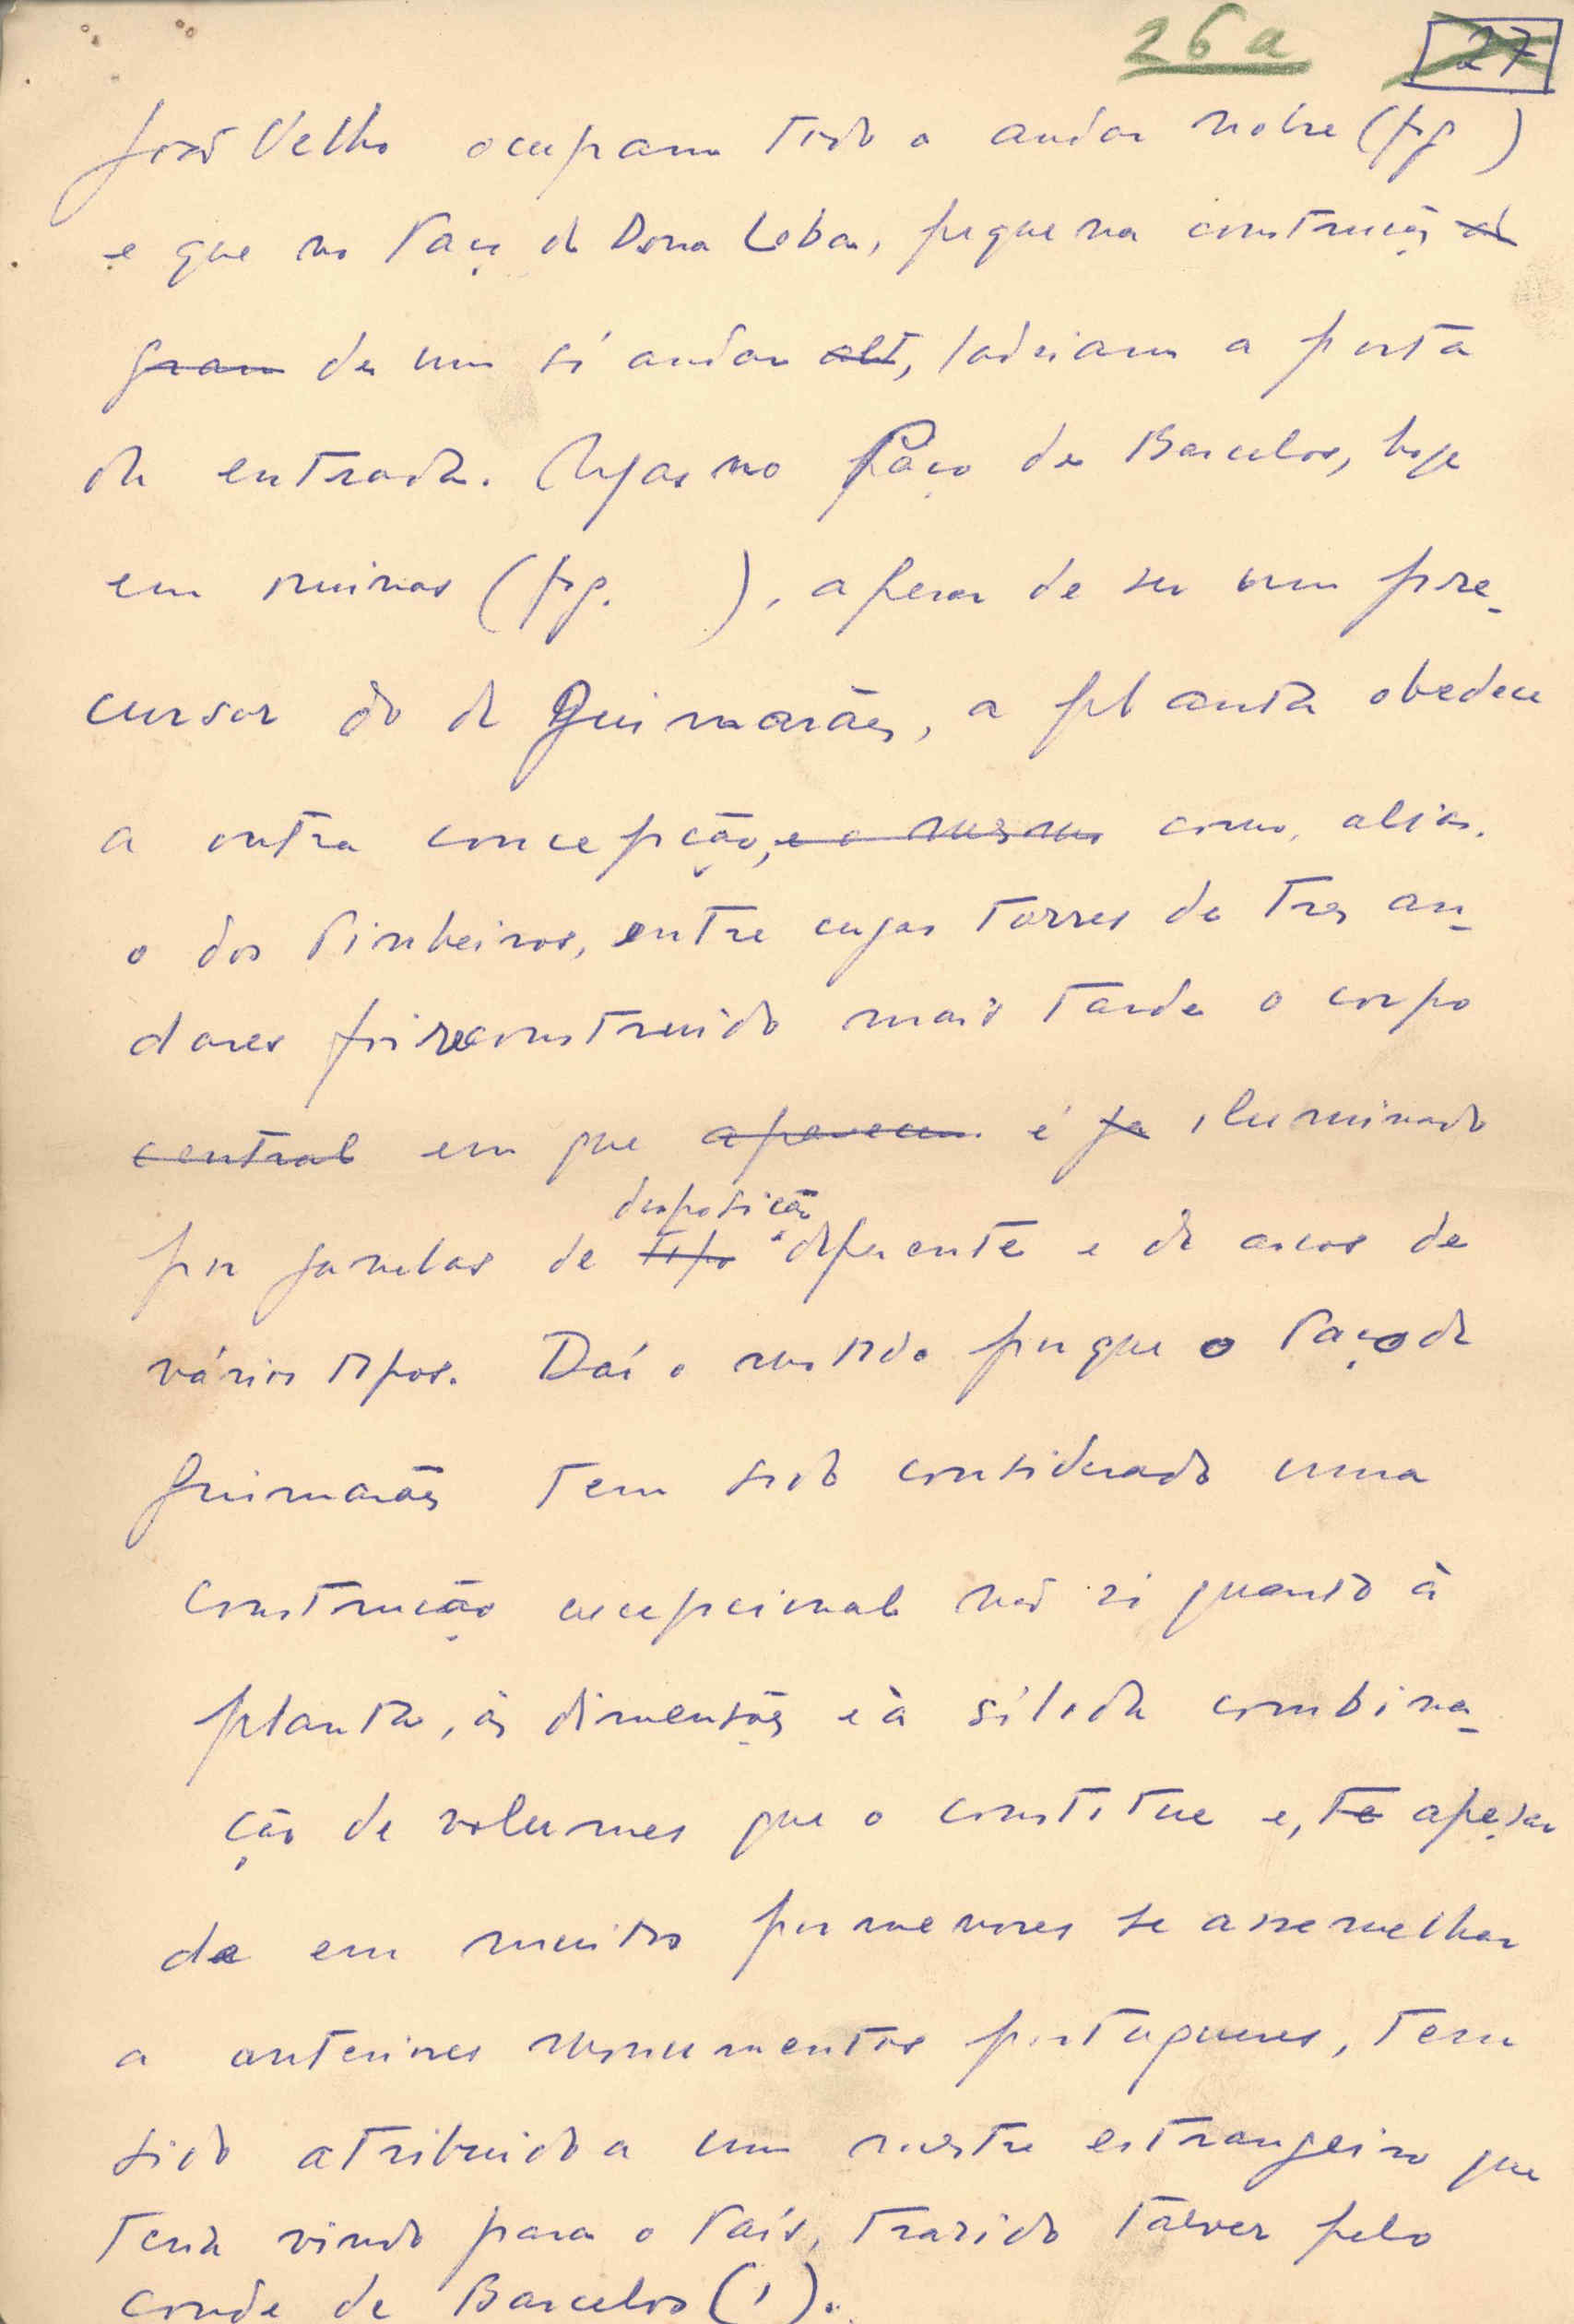 26 a 27
João Velho ocupam todo o andar nobre (fig )
e que no Paço de Dona Loba, pequena construção d
gram de um só andar alt, ladeiam a porta
de entrada. Mas no Paço de Barcelos, hoje
em ruinas (fig. ), apesar de ser um pre-
cursor do de Guimarães, a planta obedece
a outra concepção, e o mesmo como, aliás,
o dos Pinheiros, entre cujas torres de tres an-
dares foi reconstruido mais tarde o corpo
central em que aparecem é ja iluminado
disposição
por janelas de tipo diferente e de arcos de
vários tipos. Daí o motivo porque o Paço de
Guimarães tem sido considerado uma
construção excepcional não só quanto à
planta, ás dimensões e à sólida combina-
ção de volumes que o constitue e, te apesar
de em muitos pormenores se assemelhar
a anteriores monumentos portugueses, tem
sido atribuido a um mestre estrangeiro que
teria vindo para o País, trazido talvez pelo
conde de Barcelos (1).